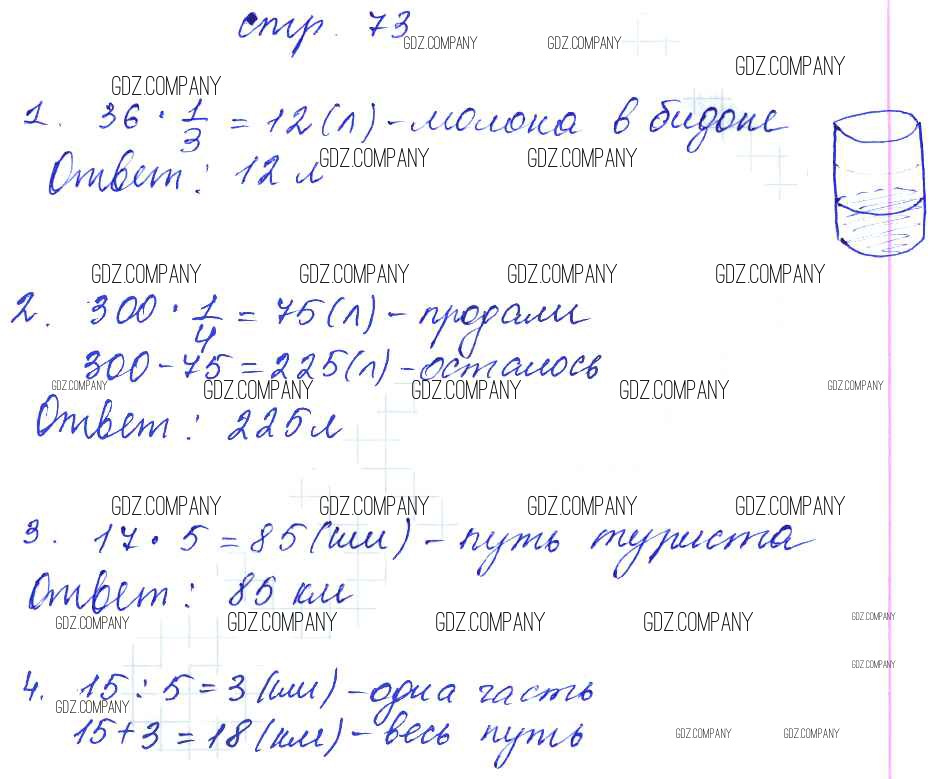 стр. 73
GDZ.COMPANY GDZ.COMPANY
GDZ.COMPANY
GDZ.COMPANY
1. 36 · 1/3 = 12 (л) - молока в бидоне
GDZ.COMPANY GDZ.COMPANY
Ответ: 12 л
GDZ.COMPANY GDZ.COMPANY GDZ.COMPANY GDZ.COMPANY
2. 300 · 1/4 = 75 (л) - продали
300 - 75 = 225 (л) - осталось
GDZ.COMPANY GDZ.COMPANY GDZ.COMPANY GDZ.COMPANY GDZ.COMPANY
Ответ: 225 л
GDZ.COMPANY GDZ.COMPANY GDZ.COMPANY GDZ.COMPANY
3. 17 · 5 = 85 (км) - путь туриста
Ответ: 85 км
GDZ.COMPANY GDZ.COMPANY GDZ.COMPANY GDZ.COMPANY GDZ.COMPANY
GDZ.COMPANY
4. 15 : 5 = 3 (км) - одна часть
GDZ.COMPANY
15 + 3 = 18 (км) - весь путь
GDZ.COMPANY GDZ.COMPANY